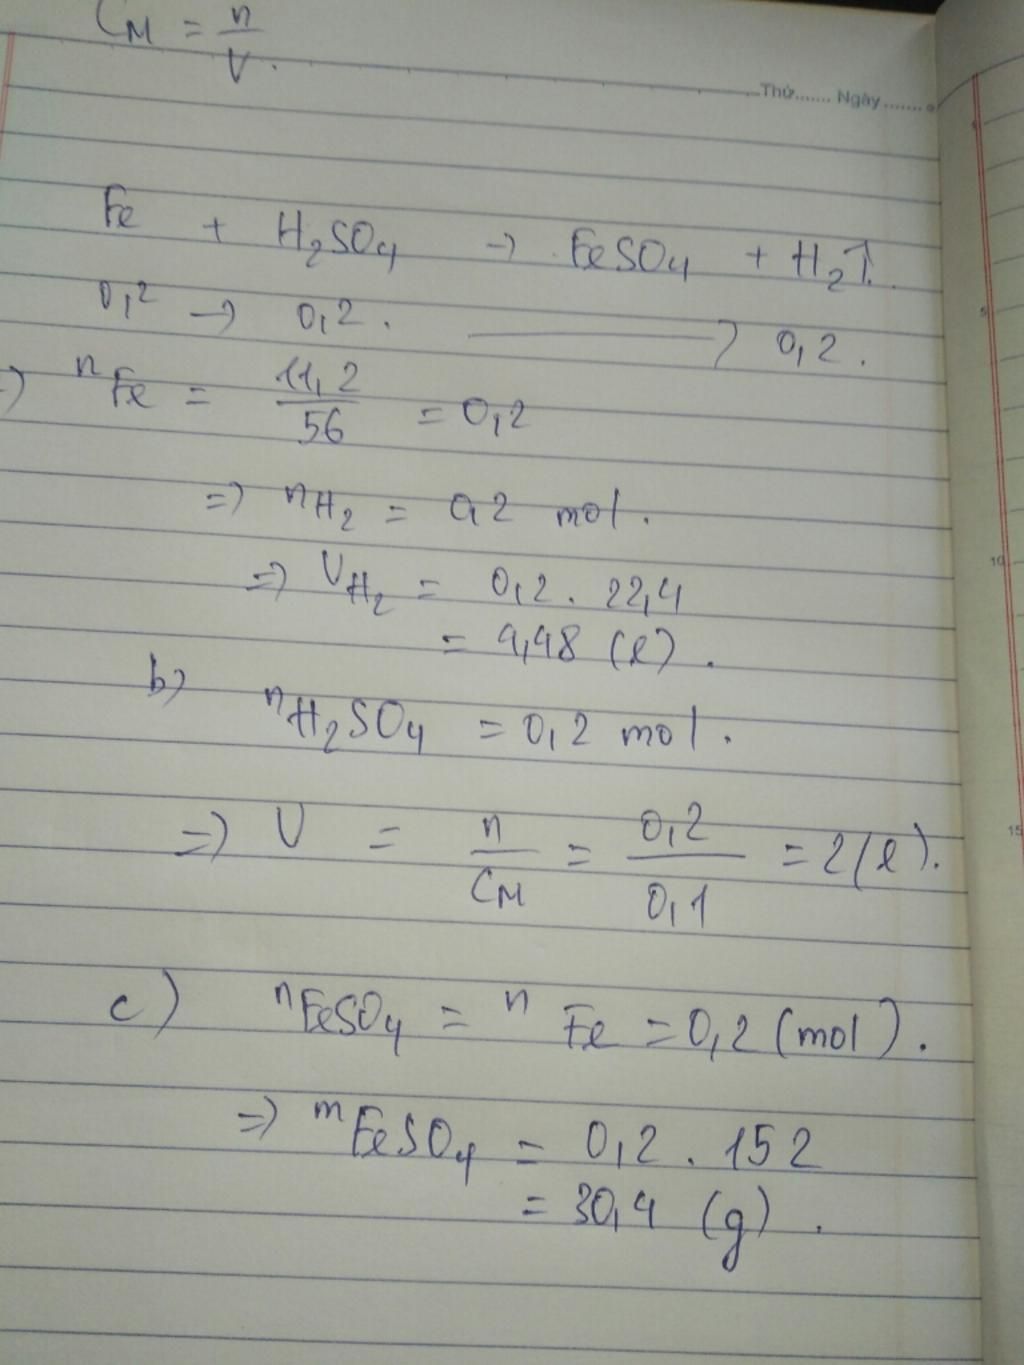 CM = n/V.
Thứ....... Ngày.......
Fe + H₂SO₄ → FeSO₄ + H₂↑.
0,2 → 0,2. ⟶ 0,2.
5
=) nFe = 11,2/56 = 0,2
=) nH₂ = 0,2 mol.
10
=) VH₂ = 0,2 . 22,4
= 4,48 (l).
b)
nH₂SO₄ = 0,2 mol.
=) V = n/CM = 0,2/0,1 = 2(l).
15
c) nFeSO₄ = nFe = 0,2 (mol).
=) mFeSO₄ = 0,2 . 152
= 30,4 (g).